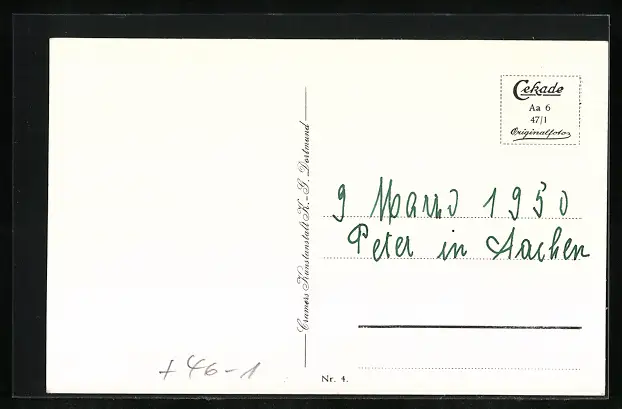 Cekade
Aa 6
47/1
Originalfotos
Cramers Kunstanstalt K.-G., Dortmund
9 Marzo 1950
Peter in Aachen
+46-1
Nr. 4.